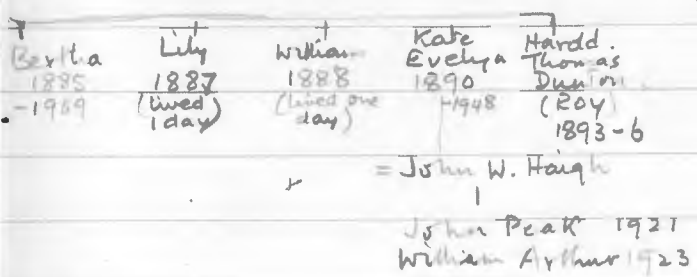 Bertha
1885
-1969
Lily
1887
(lived
1 day)
William
1888
(lived one
day)
Kate
Evelyn
1890
-1948
Harold.
Thomas
Dunton.
(Roy)
1893-6
= John W. Haigh
John Peak 1921
William Arthur 1923